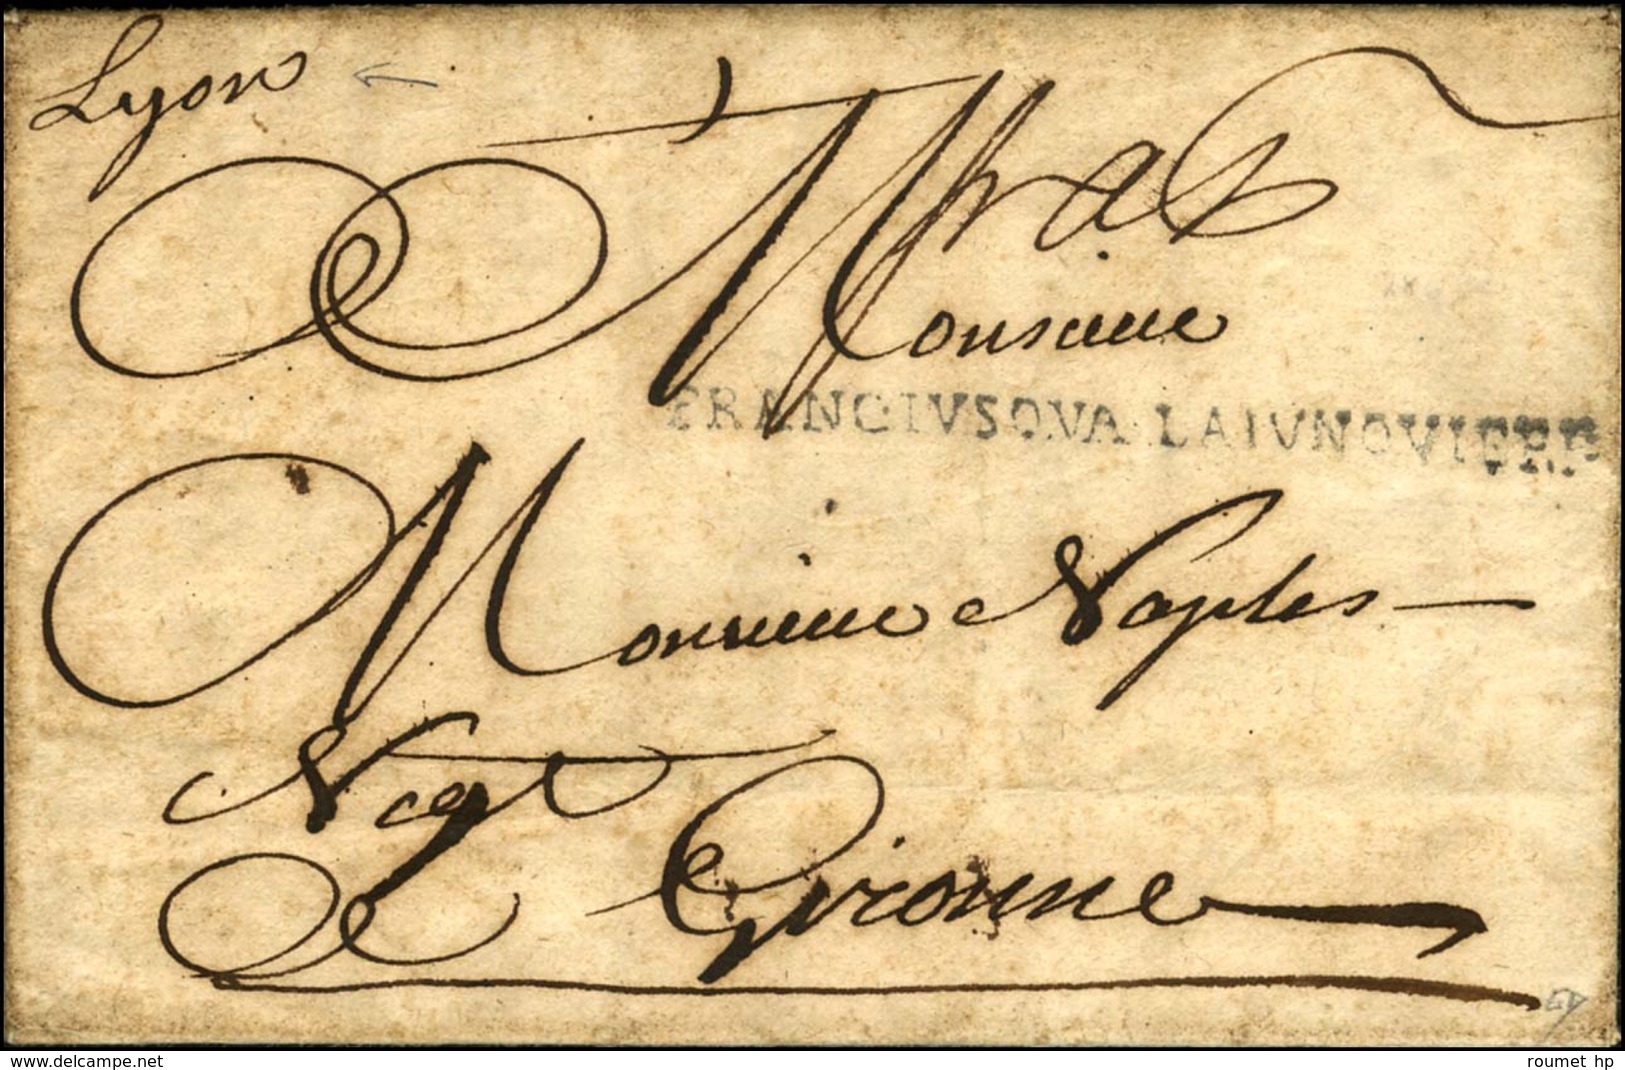 Lyon
Monsieur
FRANCIVSQVA LAIVNQVIERE
Monsieur Naples
Negt
Gironne
delcampe.net
roumet hp